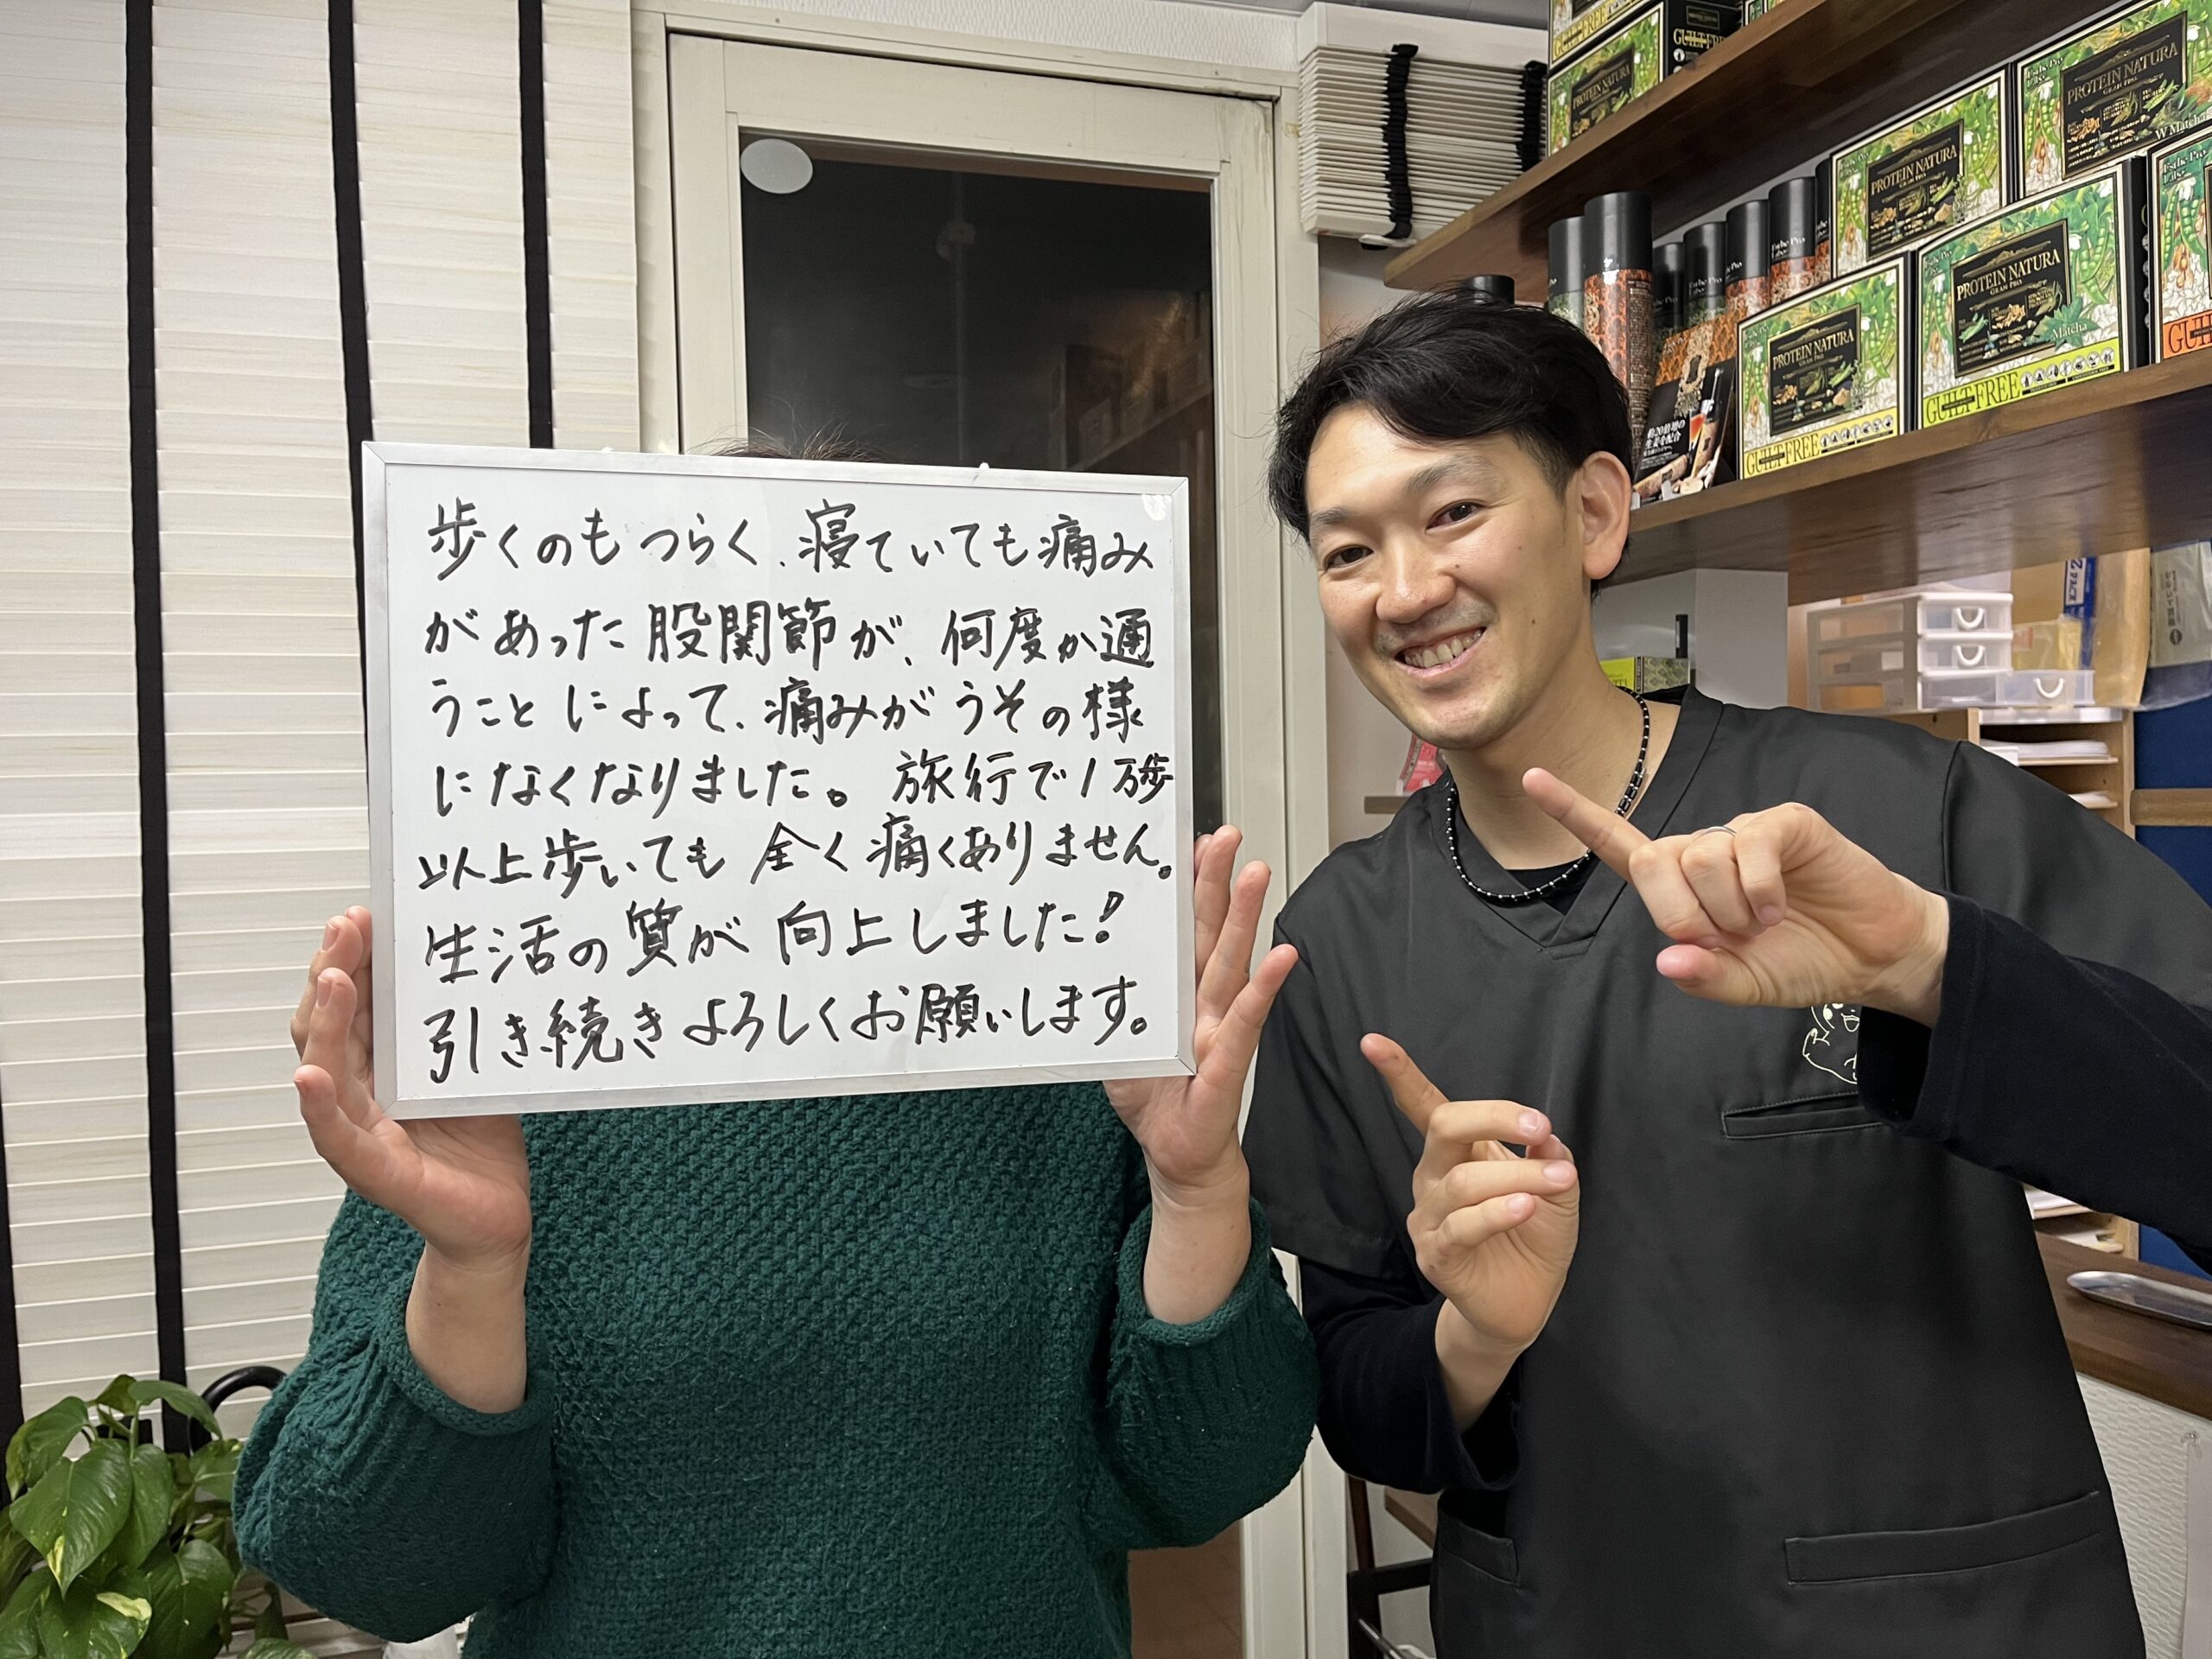 歩くのもつらく、寝ていても痛み
があった股関節が、何度か通
うことによって、痛みがうその様
になくなりました。旅行で1万歩
以上歩いても全く痛くありません。
生活の質が向上しました!
引き続きよろしくお願いします。
GUILT FREE
PROTEIN NATURA
PROTEIN NATURA
GRAN PRO
W Matcha
Esthe Pro Labo
PROTEIN NATURA
GRAN PRO
PROTEIN NATURA
GRAN PRO
Matcha
GUILT FREE
PROTEIN NATURA
GUILT FREE